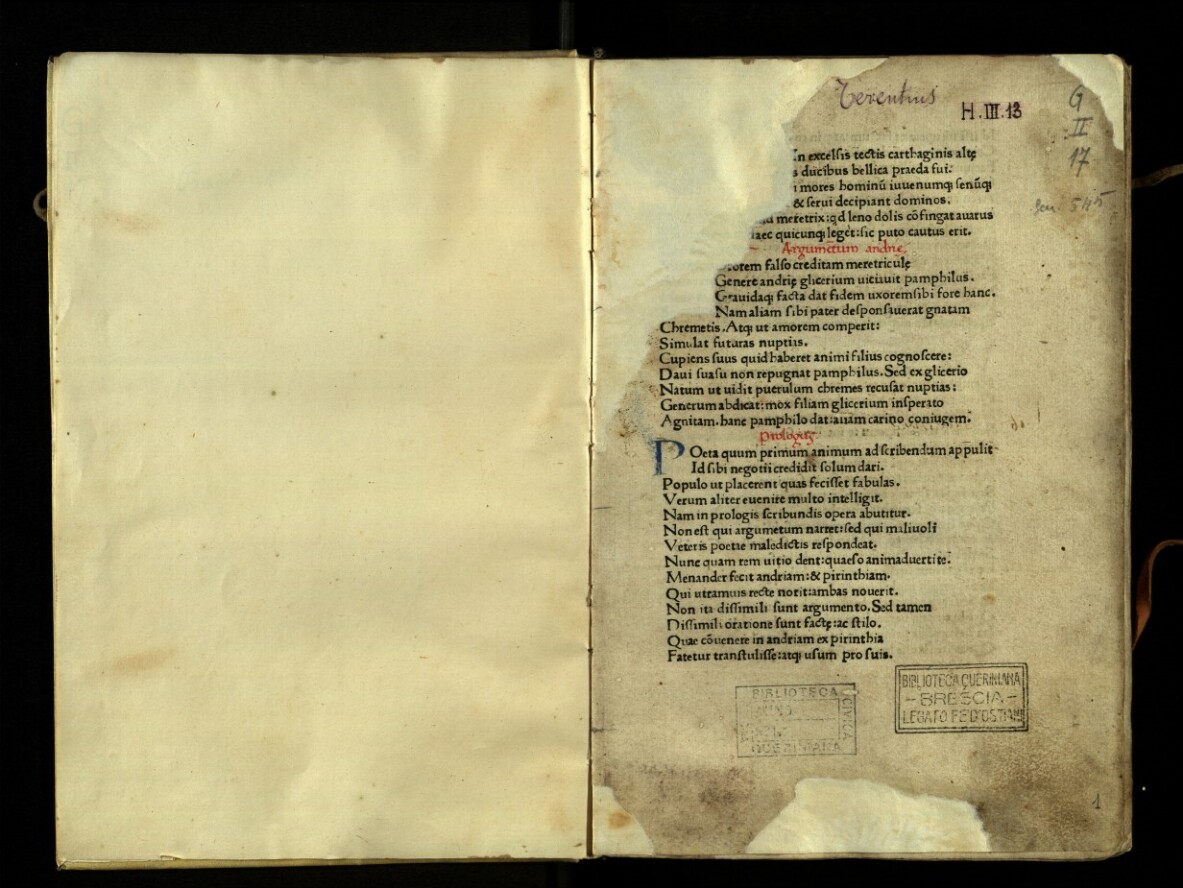 Terentius
H.III.13
G
II
17
In excelsis tectis carthaginis altę
s ducibus bellica praeda fui:
i mores hominū iuuenumqȝ senūqȝ
& serui decipiant dominos.
meretrix: qd leno dolis cōfingat auarus
aec quicunqȝ leget: sic puto cautus erit.
Argumētum andrię
orem falso creditam meretriculę
Genere andrię glicerium uiciauit pamphilus.
Grauidaqȝ facta dat fidem uxorem sibi fore hanc.
Nam aliam sibi pater desponsauerat gnatam
Chremetis. Atqȝ ut amorem comperit:
Simulat futuras nuptias.
Cupiens suus quid haberet animi filius cognoscere:
Daui suasu non repugnat pamphilus. Sed ex glicerio
Natum ut uidit puerulum chremes recusat nuptias:
Generum abdicat: mox filiam glicerium insperato
Agnitam. hanc pamphilo dat: aliam carino coniugem.
Prologus
POeta quum primum animum ad scribendum appulit
Id sibi negotii credidit solum dari.
Populo ut placerent quas fecisset fabulas.
Verum aliter euenire multo intelligit.
Nam in prologis scribundis opera abutitur.
Non est qui argumetum narret: sed qui maliuoli
Veteris poetae maledictis respondeat.
Nunc quam rem uitio dent: quaeso animaduertite.
Menander fecit andriam: & pirinthiam.
Qui utramuis recte norit: ambas nouerit.
Non ita dissimili sunt argumento. Sed tamen
Dissimili oratione sunt factę: ac stilo.
Quae cōuenere in andriam ex pirinthia
Fatetur transtulisse: atqȝ usum pro suis.
BIBLIOTECA
CIVICA
QUERINIANA
BIBLIOTECA QUERINIANA
- BRESCIA -
LEGATO FE D'OSTIANI
1